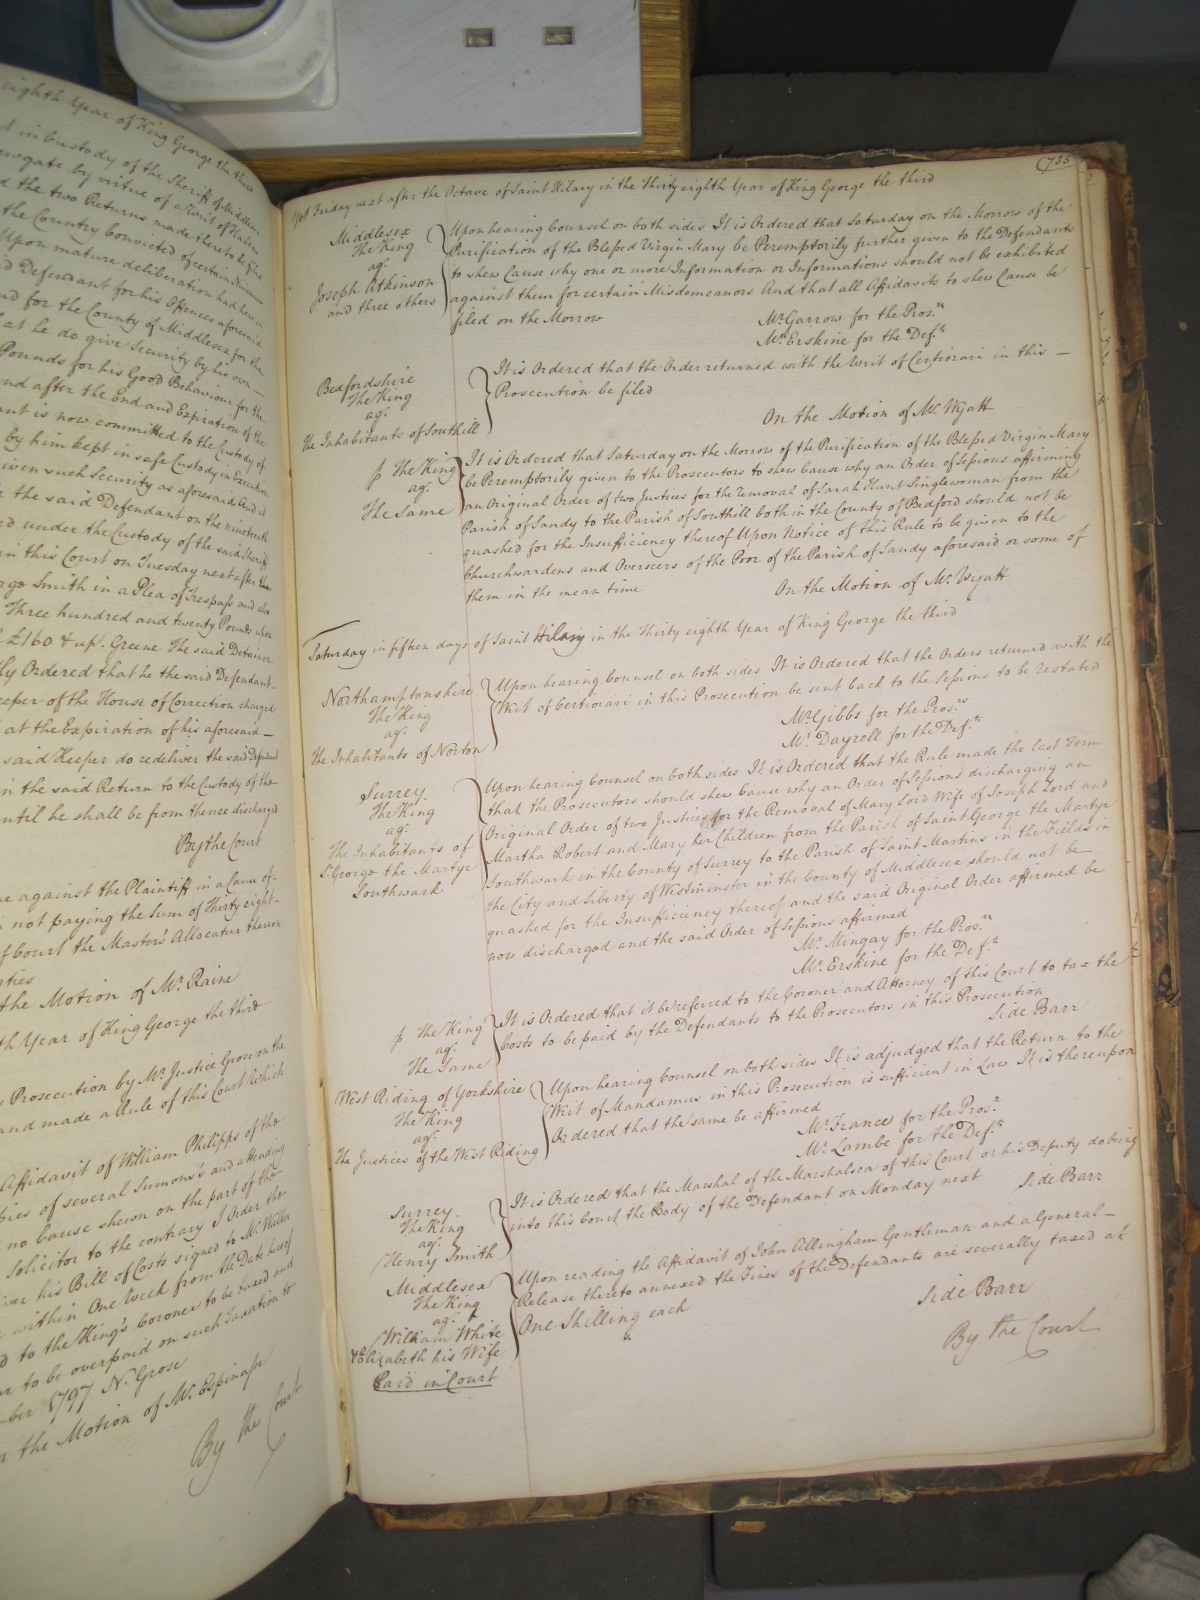 eighth Year of King George the third
in Custody of the Sheriff of Middlesex
Newgate by virtue of a Writ of Habeas
the two Returns made thereto be filed
the Country convicted of certain Misdemeanors
Upon mature deliberation had herein
Defendant for his Offences aforesaid
for the County of Middlesex for the
at he do give Security by his own —
Pounds for his Good Behaviour for the
and after the end and Expiration of the
ant is now committed to the Custody of
by him kept in safe Custody in Execution
given such Security as aforesaid And it
the said Defendant on the nineteenth
under the Custody of the said Sheriff
in this Court on Tuesday next after the
Smith in a Plea of Trespass and also
Three hundred and twenty Pounds upon
£160 & up.ds Greene The said Detainer
ly Ordered that he the said Defendant
eeper of the House of Correction charged
at the Expiration of his aforesaid —
said Keeper do redeliver the said Defendant
in the said Return to the Custody of the
until he shall be from thence discharged
By the Court
against the Plaintiff in a Cause of
not paying the Sum of Thirty eight
of Court the Master's Allocatur thereon
rties
the Motion of Mr. Raine
th Year of King George the third
Prosecution by Mr Justice Grose on the
and made a Rule of this Court Which
Affidavit of William Philipps of the
pies of several Sumons's and attending
no Cause shewn on the part of the
Solicitor to the contrary I Order the
his Bill of Costs signed to Mr. Wilber
within One Week from the Date hereof
to the King's Coroner to be taxed and
to be overpaid on such Taxation to
ber 1797 N. Grose
the Motion of Mr. Espinasse
By the Court
735
Yet Friday next after the Octave of Saint Hilary in the Thirty eighth Year of King George the third
Middlesex
The King
agt.
Joseph Atkinson
and three others
Upon hearing Counsel on both sides It is Ordered that Saturday on the Morrow of the
Purification of the Blessed Virgin Mary be Peremptorily further given to the Defendants
to shew Cause why one or more Information or Informations should not be exhibited
against them for certain Misdemeanors And that all Affidavits to shew Cause be
filed on the Morrow
Mr. Garrow for the Pros.rs
Mr. Erskine for the Def.ts
Bedfordshire
The King
agt.
The Inhabitants of Southill
It is Ordered that the Order returned with the Writ of Certiorari in this —
Prosecution be filed
On the Motion of Mr. Wyatt
p The King
agt.
The Same
It is Ordered that Saturday on the Morrow of the Purification of the Blessed Virgin Mary
be Peremptorily given to the Prosecutors to shew Cause why an Order of Sessions affirming
an Original Order of two Justices for the removal of Sarah Hunt Singlewoman from the
Parish of Sandy to the Parish of Southill both in the County of Bedford should not be
quashed for the Insufficiency thereof Upon Notice of this Rule to be given to the
Churchwardens and Overseers of the Poor of the Parish of Sandy aforesaid or some of
them in the mean time
On the Motion of Mr. Wyatt
Saturday in fifteen days of Saint Hilary in the Thirty eighth Year of King George the third
Northamptonshire
The King
agt.
The Inhabitants of Norton
Upon hearing Counsel on both sides It is Ordered that the Orders returned with the
Writ of Certiorari in this Prosecution be sent back to the Sessions to be restated
Mr. Gibbs for the Pros.rs
Mr. Dayrell for the Def.ts
Surrey.
The King
agt.
The Inhabitants of
St. George the Martyr
Southwark
Upon hearing Counsel on both sides It is Ordered that the Rule made the last Term
that the Prosecutors should shew Cause why an Order of Sessions discharging an
Original Order of two Justices for the Removal of Mary Lord Wife of Joseph Lord and
Martha Robert and Mary her Children from the Parish of Saint George the Martyr
Southwark in the County of Surrey to the Parish of Saint Martins in the Fields in
the City and Liberty of Westminster in the County of Middlesex should not be
quashed for the Insufficiency thereof and the said Original Order affirmed be
now discharged and the said Order of Sessions affirmed
Mr. Mingay for the Pros.rs
Mr. Erskine for the Def.ts
p The King
agt.
The Same
It is Ordered that it be referred to the Coroner and Attorney of this Court to tax the
Costs to be paid by the Defendants to the Prosecutors in this Prosecution
Side Barr
West Riding of Yorkshire
The King
agt.
The Justices of the West Riding
Upon hearing Counsel on both sides It is adjudged that the Return to the
Writ of Mandamus in this Prosecution is sufficient in Law It is thereupon
Ordered that the same be affirmed
Mr. France for the Pros.r
Mr. Lambe for the Def.ts
Surrey.
The King
agt.
Henry Smith
It is Ordered that the Marshal of the Marshalsea of this Court or his Deputy do bring
into this Court the Body of the Defendant on Monday next
Side Barr
Middlesex
The King
agt.
William White
& Elizabeth his Wife
Paid in Court
Upon reading the Affidavit of John Allingham Gentleman and a General —
Release thereto annexed the Fines of the Defendants are severally taxed at
One Shilling each
Side Barr
By the Court